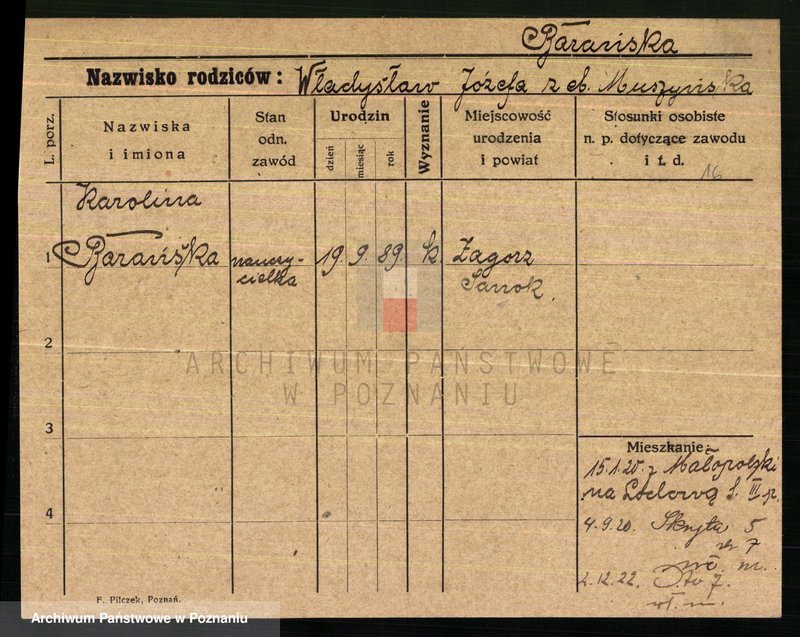 Barańska
Nazwisko rodziców: Władysław Józefa z d. Muszyńska
L. porz.
Nazwiska i imiona
Stan odn. zawód
Urodzin
dzień
miesiąc
rok
Wyznanie
Miejscowość urodzenia i powiat
Stosunki osobiste n. p. dotyczące zawodu i t. d.
16
Karolina
1 Barańska nauczy- 19. 9. 89. k. Zagorz
cielka Sanok
2
ARCHIWUM PAŃSTWOWE
W POZNANIU
3
Mieszkanie:
15.1.20. z Małopolski
na Łąkową
4
4.9.20. Skryta 5
2.12.22. 7.
F. Pilczek, Poznań.
Archiwum Państwowe w Poznaniu